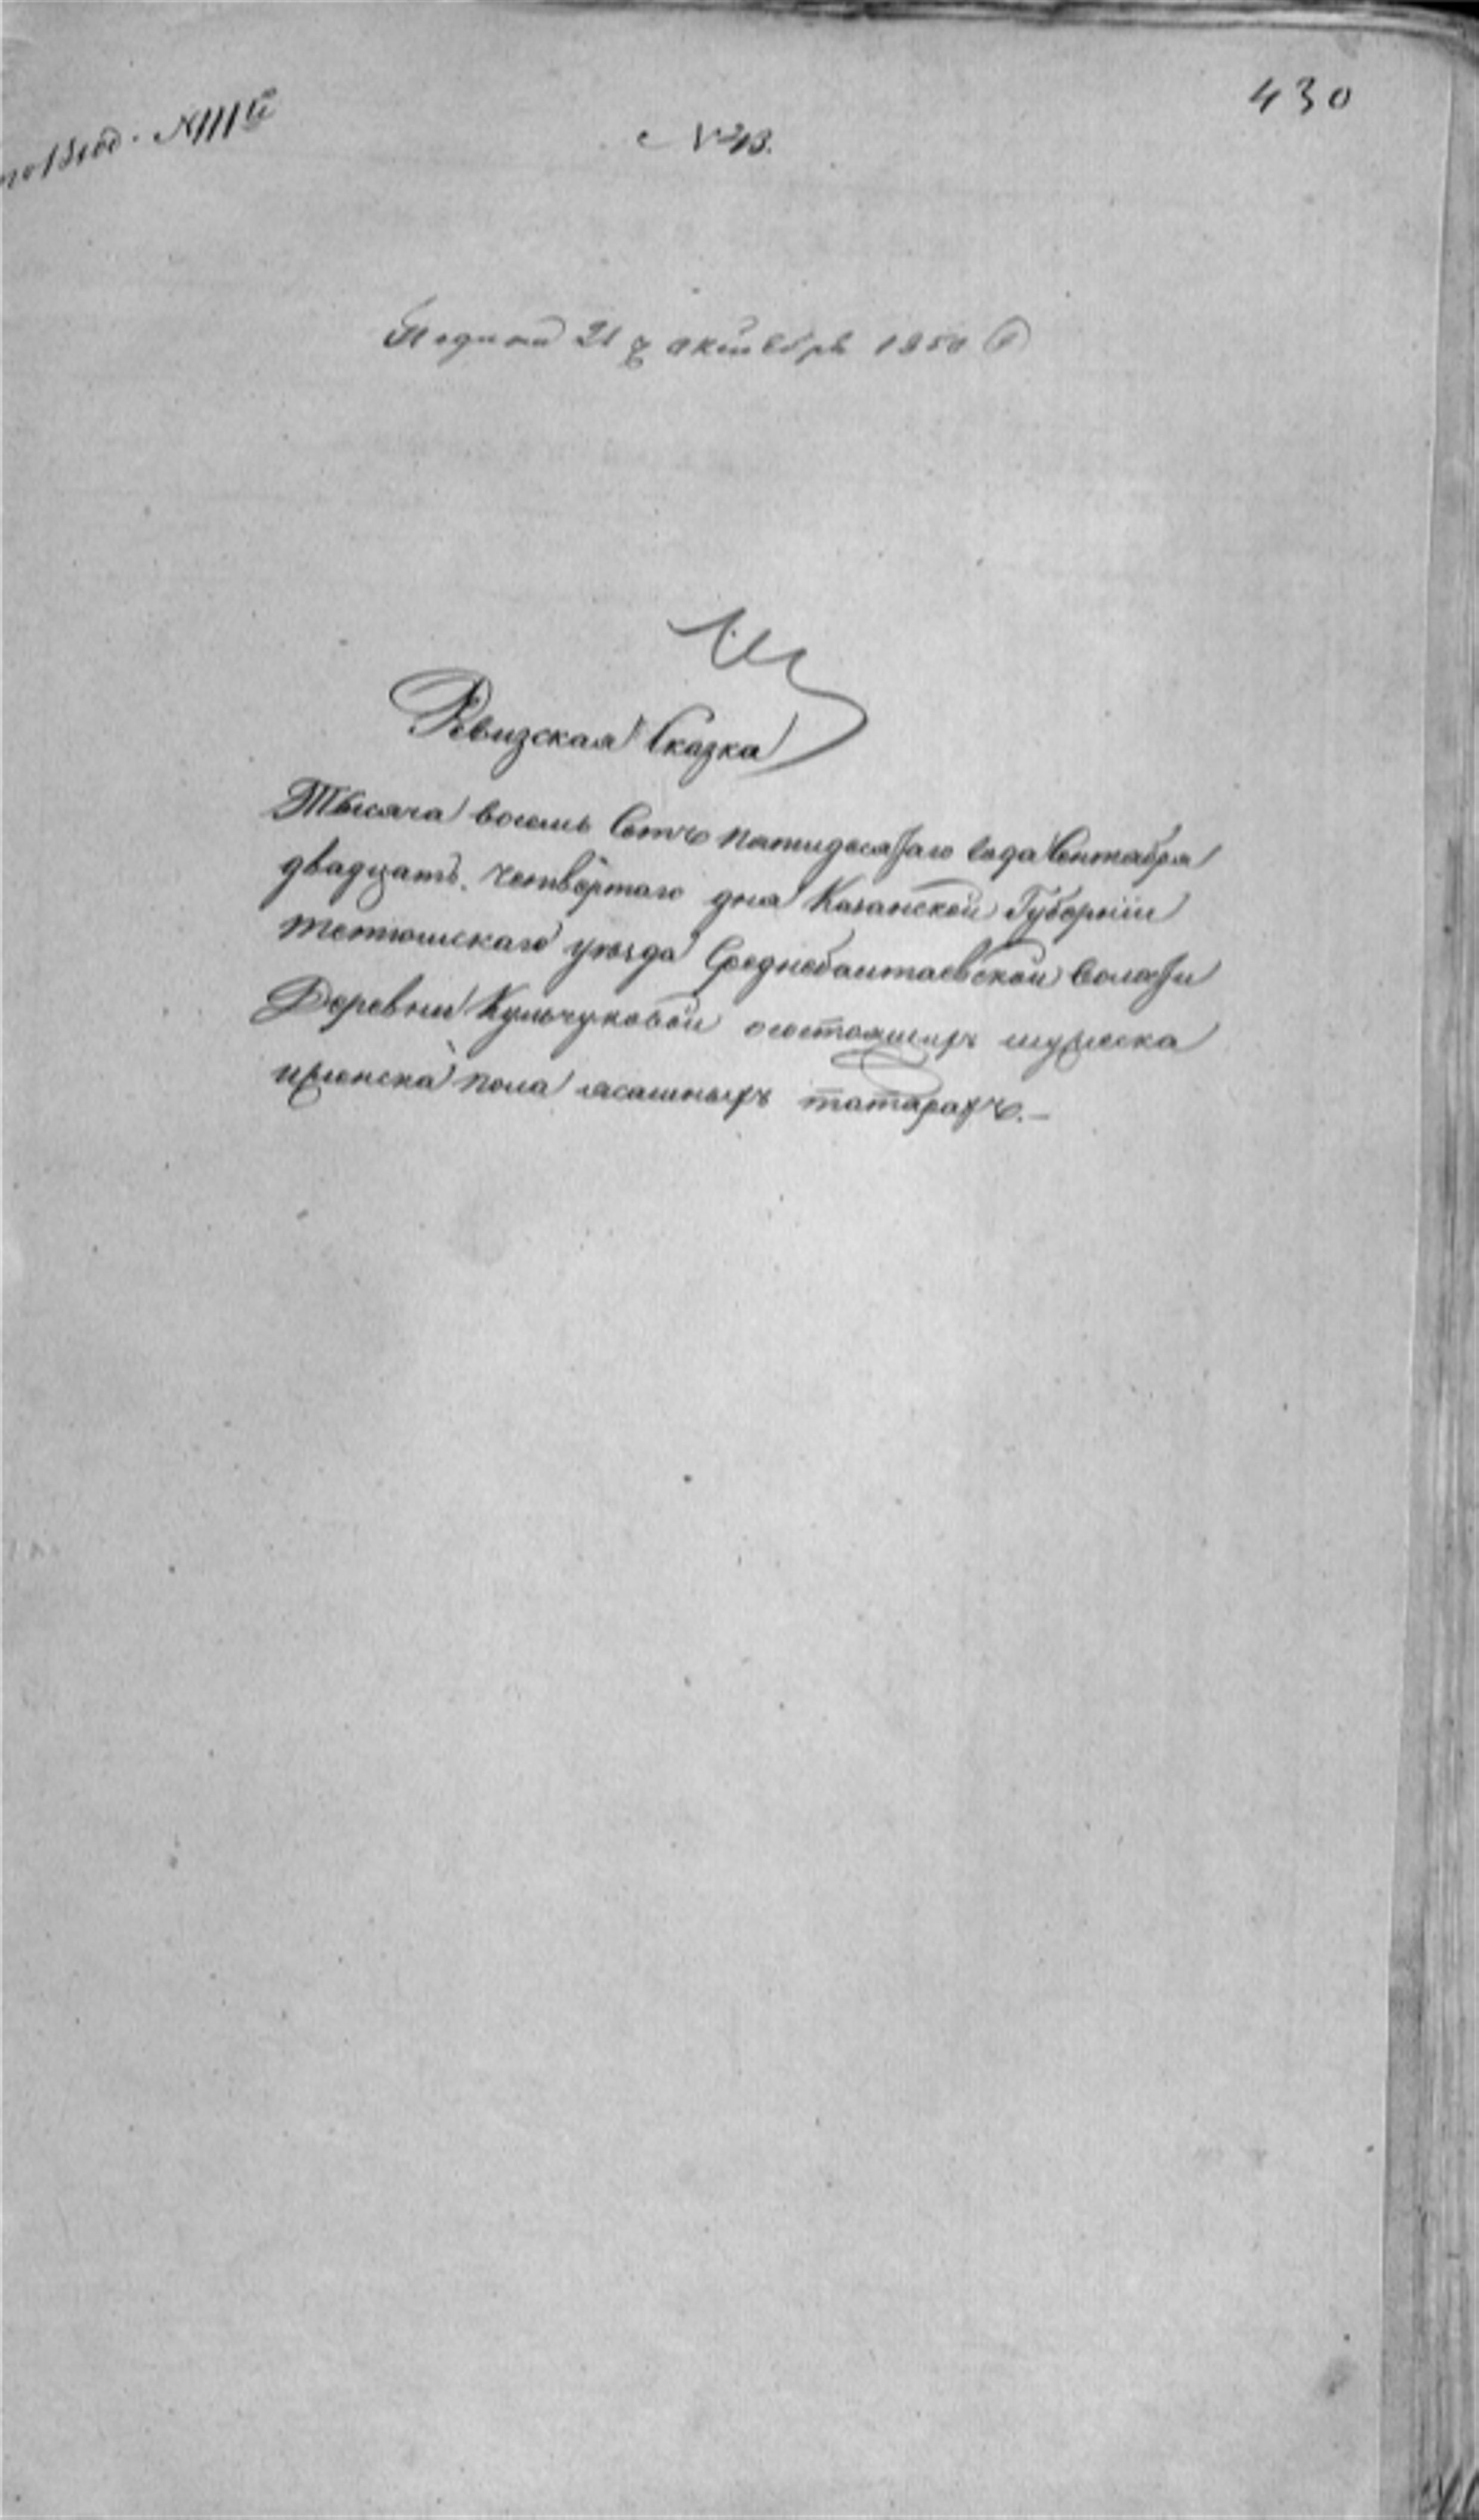 430
№ 43.
Подана 21 октября 1850
Ревизская Сказка
Тысяча восемь Сотъ пятидесятаго года Сентября
двадцать четвертаго дня Казанской Губернiи
тетюшскаго уезда Среднебалтаевской волости
Деревни Кульчуковой осостоящихъ мужеска
иженска пола ясашныхъ татарахъ.—